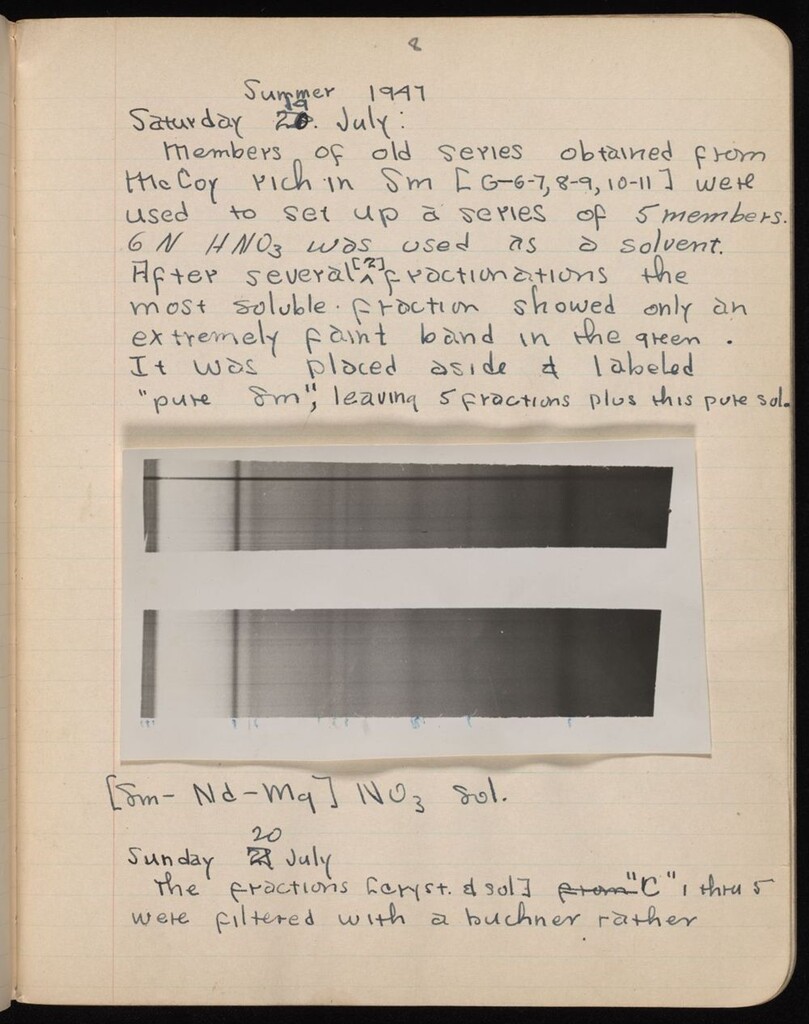 8
Summer 1947
Saturday 19 July:
Members of old series obtained from
McCoy rich in Sm [G-6-7, 8-9, 10-11] were
used to set up a series of 5 members.
6 N HNO3 was used as a solvent.
After several [2] fractionations the
most soluble fraction showed only an
extremely faint band in the green.
It was placed aside & labeled
"pure Sm", leaving 5 fractions plus this pure sol.
[Sm-Nd-Mg] NO3 Sol.
Sunday 20 July
The fractions [cryst. & sol] from "C" 1 thru 5
were filtered with a buchner rather